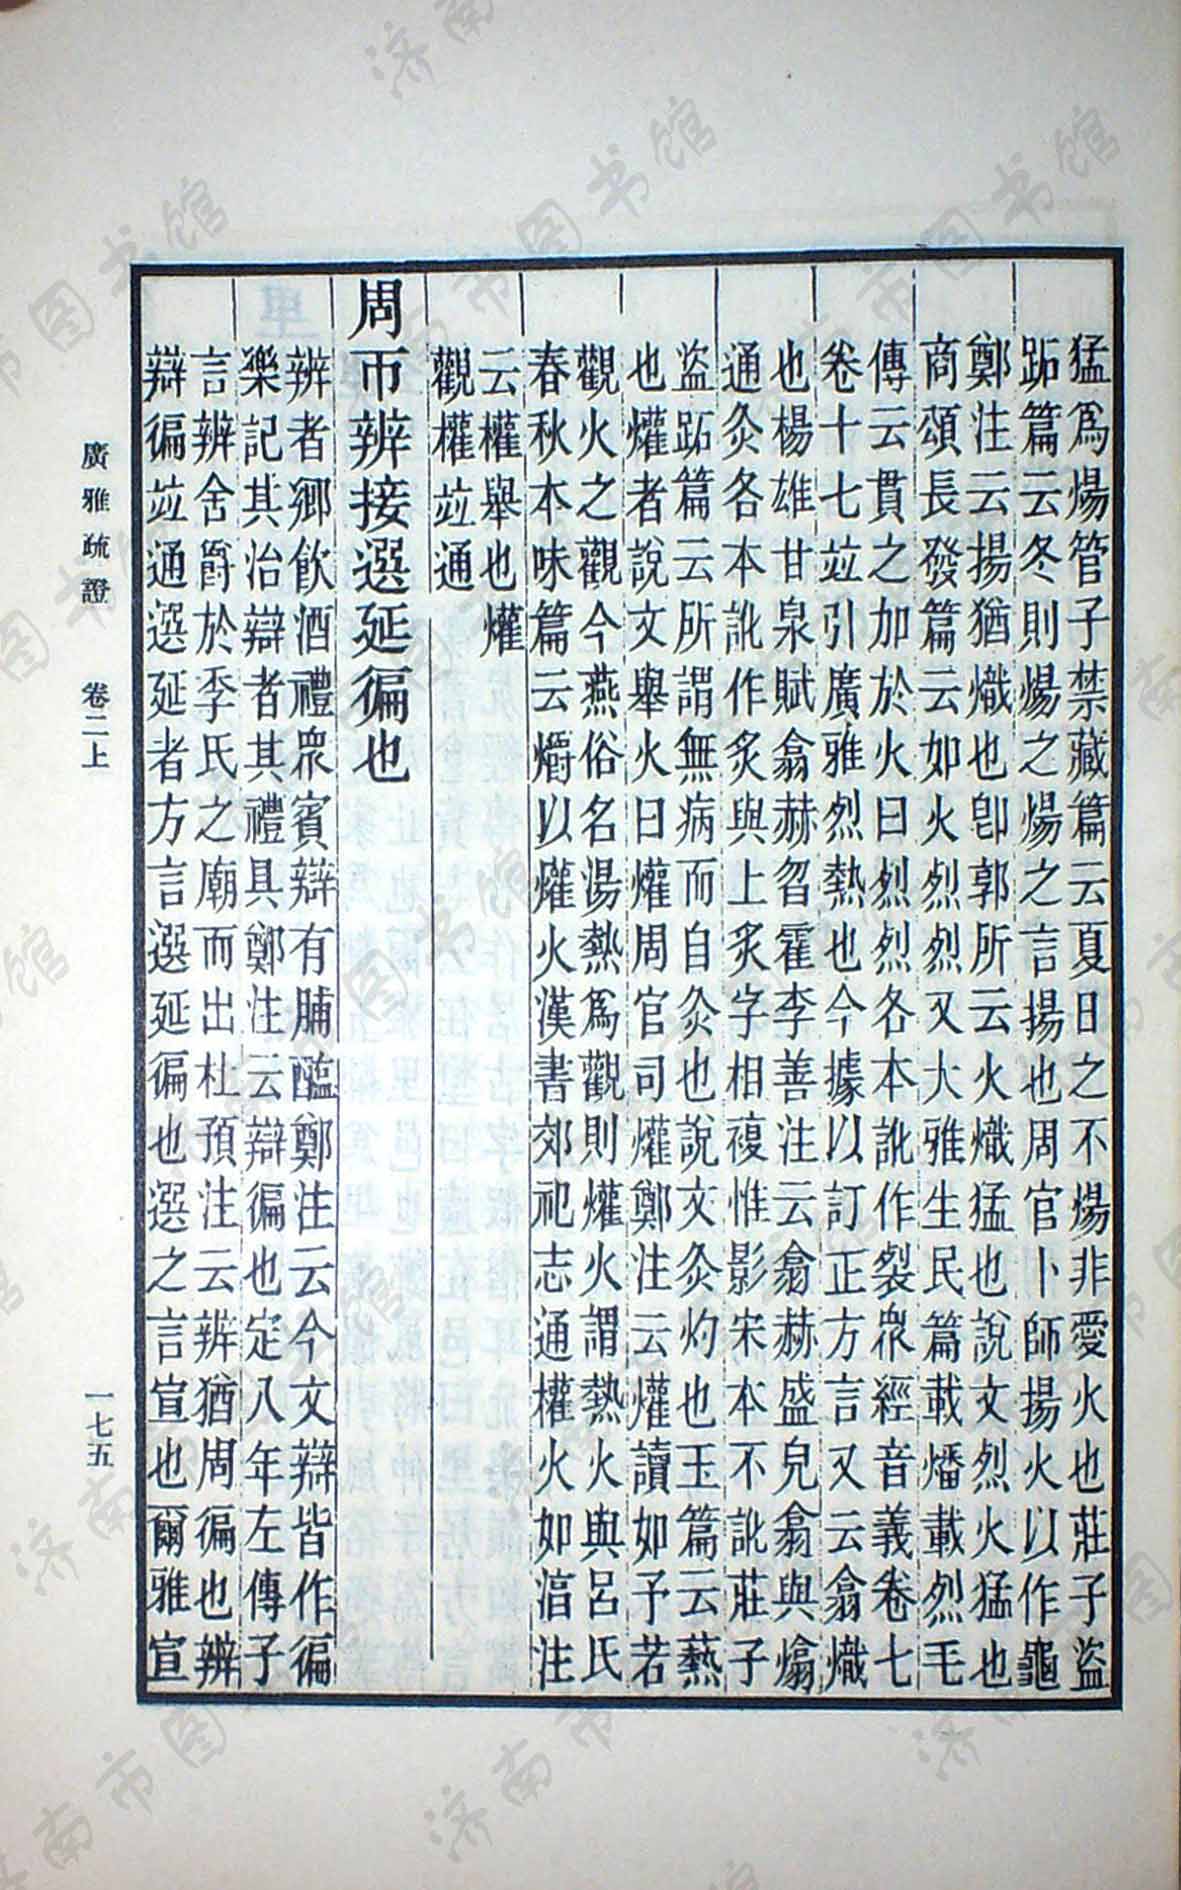 猛爲煬管子禁藏篇云夏日之不煬非愛火也莊子盜
跖篇云冬則煬之煬之言揚也周官卜師揚火以作龜
鄭注云揚猶熾也卽郭所云火熾猛也說文烈火猛也
商頌長發篇云如火烈烈又大雅生民篇載燔載烈毛
傳云貫之加於火曰烈烈各本訛作裂衆經音義卷七
卷十七竝引廣雅烈熱也今據以訂正方言又云翕熾
也楊雄甘泉賦翕赫曶霍李善注云翕赫盛皃翕與熻
通灸各本訛作炙與上炙字相複惟影宋本不訛莊子
盜跖篇云所謂無病而自灸也說文灸灼也玉篇云爇
也爟者說文舉火曰爟周官司爟鄭注云爟讀如予若
觀火之觀今燕俗名湯熱爲觀則爟火謂熱火與呂氏
春秋本味篇云爝以爟火漢書郊祀志通權火如湻注
云權舉也爟
觀權竝通
周帀辨接選延徧也
辨者鄉飲酒禮衆賓辯有脯醢鄭注云今文辯皆作徧
樂記其治辯者其禮具鄭注云辯徧也定八年左傳子
言辨舍爵於季氏之廟而出杜預注云辨猶周徧也辨
辯徧竝通選延者方言選延徧也選之言宣也爾雅宣
廣雅疏證 卷二上 一七五
济南市图书馆